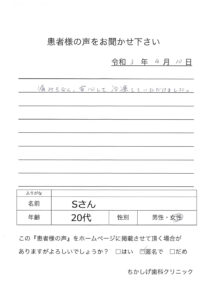 患者様の声をお聞かせ下さい
令和 3 年 4 月 10 日
痛みもなく、安心して治療していただけました。
ふりがな
名前 Sさん
年齢 20代 性別 男性・女性
この『患者様の声』をホームページに掲載させて頂く場合が
ありますがよろしいでしょうか? □はい ☑匿名で □だめ
ちかしげ歯科クリニック